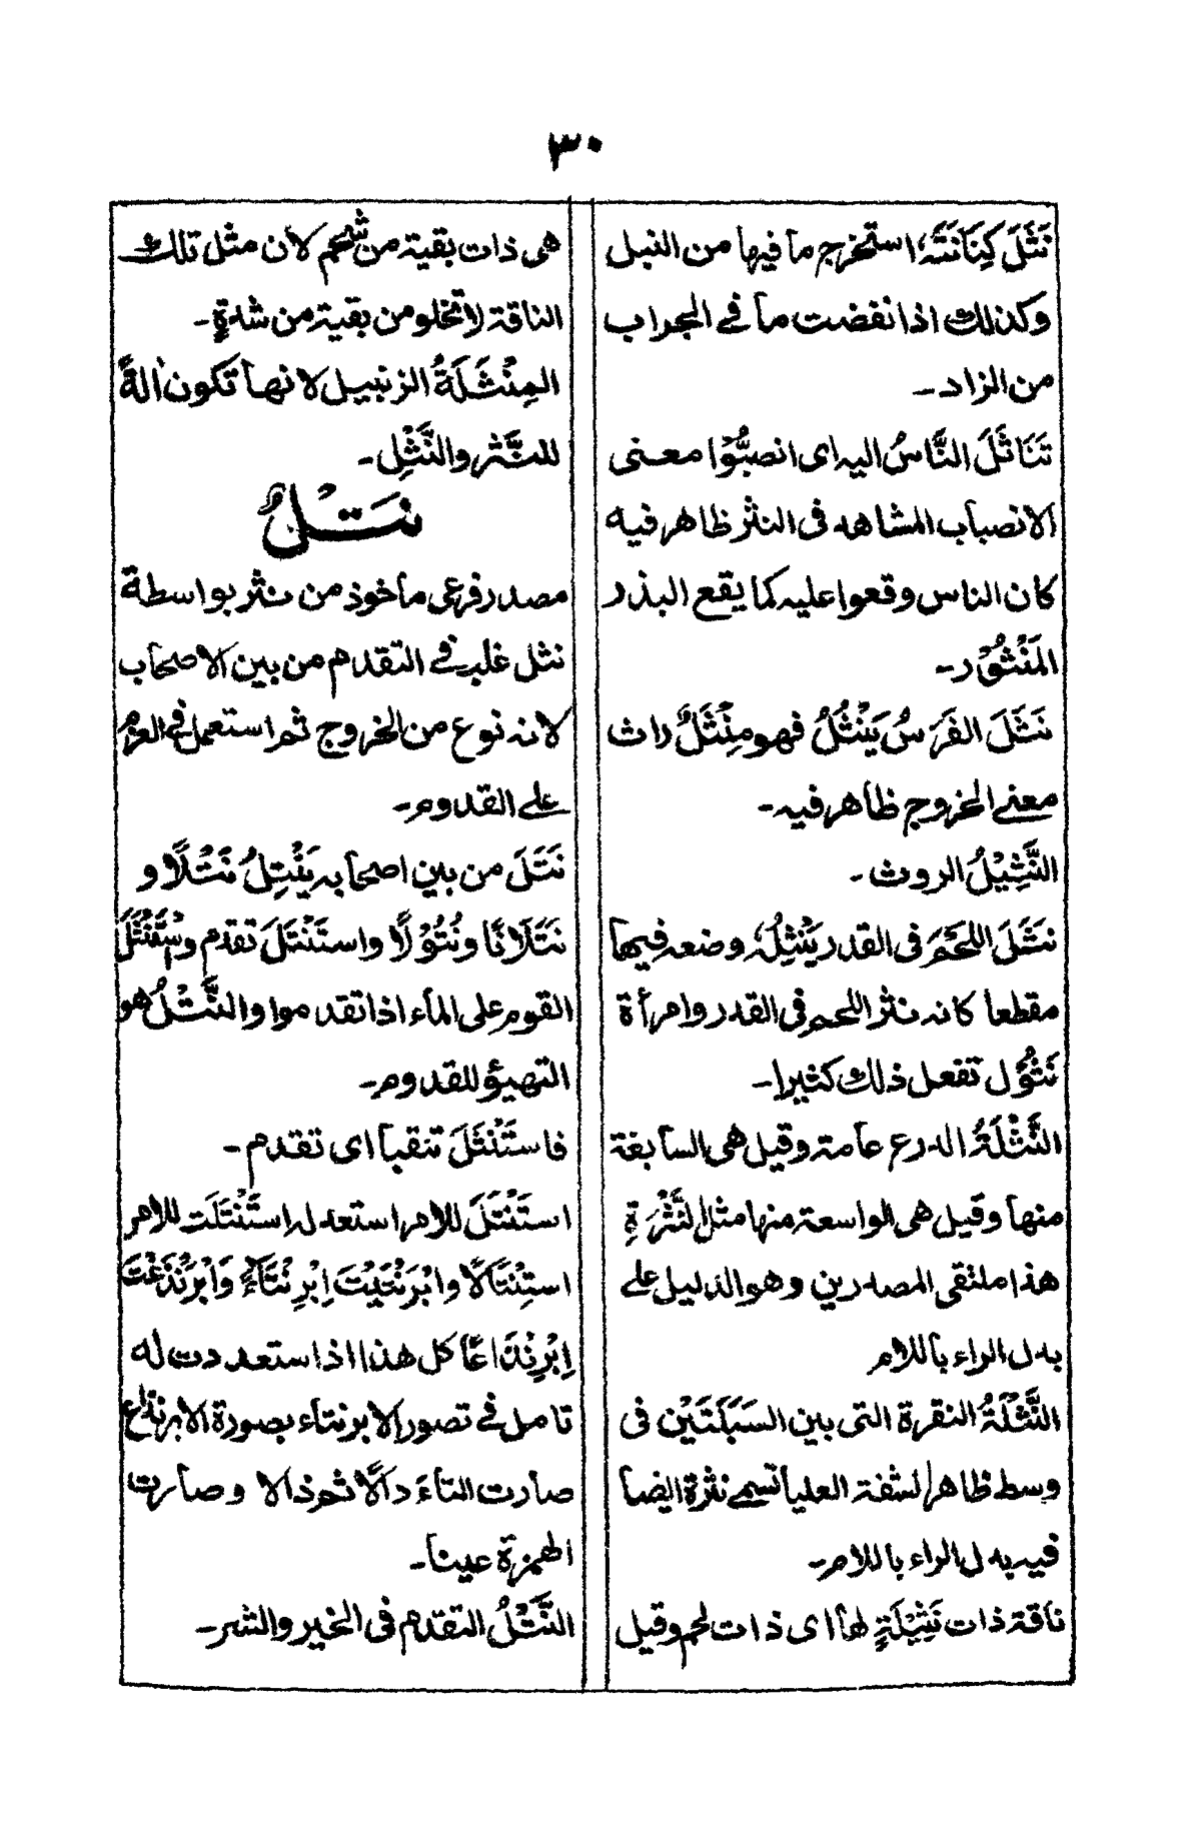 ٣٠
نَثَلَ كِنَانَتَهُ، استخرج ما فيها من النبل
وكذلك اذا نفضت ما في الجراب
من الزاد۔
تَنَاثَلَ النَّاسُ اليه اى انصبُّوْا معنى
الانصباب المشاهد فى النثر ظاهر فيه
كان الناس وقعوا عليه كما يقع البذر
المَنْثُوْر۔
نَثَلَ الفَرَسُ يَنْثُلُ فهو مِنْثَلٌ راث
معنى الخروج ظاهر فيه۔
النَّثِيْلُ الروث۔
نَثَلَ اللحَّمَ فى القدر يَنْثِلُهُ، وضعه فيها
مقطعا كانه نثر اللحم فى القدر وامرأة
نَثُوْل تفعل ذلك كثيرا۔
النَّثْلَةُ الدرع عامة وقيل هى السابغة
منها وقيل هى الواسعة منها مثل النَّثْرَةِ
هذا ملتقى المصدرين وهو الدليل على
بدل الراء باللام
النَّثْلَةُ النقرة التى بين السَبَلَتَيْن فى
وسط ظاهر الشفة العليا تسمى نثرة ايضا
فيه بدل الراء باللام۔
ناقة ذات نَثِيْلَةٍ لها اى ذات لحم وقيل
هى ذات بقية من شحم لان مثل تلك
الناقة لا تخلو من بقية من شدةٍ۔
المِنْثَلَةُ الزنبيل لانها تكون اٰلةً
للنَّثر والنَّثْلِ۔
نَتْلٌ
مصدر فرعى ماخوذ من نثر بواسطة
نثل غلب فى التقدم من بين الاصحاب
لانه نوع من الخروج ثم استعمل فى العزم
على القدوم۔
نَتَلَ من بين اصحابه يَنْتِلُ نَتْلًا و
نَتَلَانًا ونُتُوْلًا واستَنْتَلَ تقدم واسْتَنْتَلَ
القوم على الماء اذا تقدموا والنَّتْلُ هو
التهيؤ للقدوم۔
فاستَنْتَلَ تنقبا اى تقدم۔
استَنْتَلَ للامر استعد له استَنْتَلَت للامر
استِنْتَالًا وابْرَنْتَيْتَ اِبْرِنْتَاءً وَابْرَنْذَعْتَ
اِبْرِنْذَاعًا كل هذا اذا استعددت له
تامل فى تصور الابرنتاء بصورة الابرنذاع
صارت التاءَ دالًا ثم ذالا وصارت
الهمزة عينا۔
النَّتْلُ التقدم فى الخير والشر۔